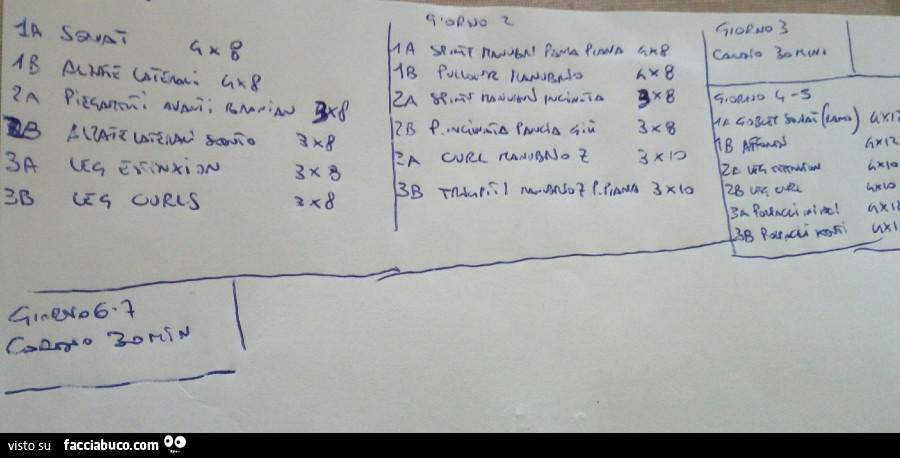 1A SQUAT 4x8
1B ALZATE LATERALI 4x8
2A PIEGAMENTI AVANTI 3x8
2B ALZATE LATERALI 3x8
3A LEG EXTENXION 3x8
3B LEG CURLS 3x8
GIORNO 2
1A SPINTE MANUBRI PANCA PIANA 4x8
1B PULLOVER MANUBRIO 4x8
2A SPINTE MANUBRI INCLINATA 3x8
2B P. INCLINATA PANCIA GIÙ 3x8
3A CURL MANUBRIO Z 3x10
3B MANUBRIO Z P. PIANA 3x10
GIORNO 3
CARDIO 30 MINN
GIORNO 4-5
1A GOBLET SQUAT
1B AFFONDI 4x12
2A LEG EXTENSION 4x10
2B LEG CURL 4x10
3A POLPACCI
3B POLPACCI
GIORNO 6-7
CARDIO 30 MIN
visto su facciabuco.com